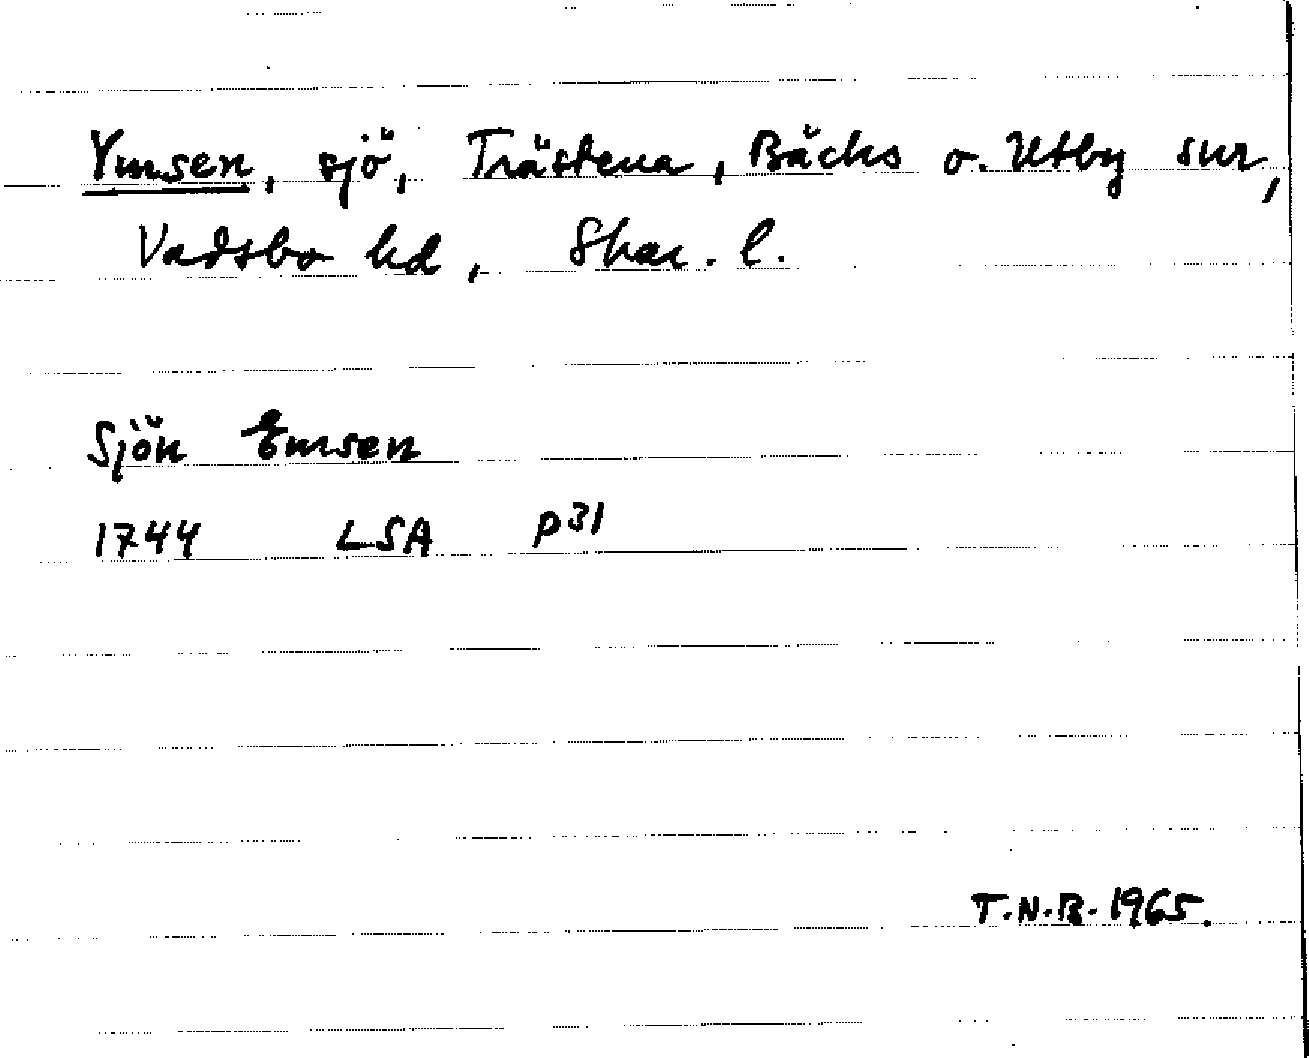 Ymsen, sjö, Trästena, Bäcks o. Utby snr,
Vadsbo hd, Skar. l.
Sjön Emsen
1744 LSA P31
T.N.B. 1965.